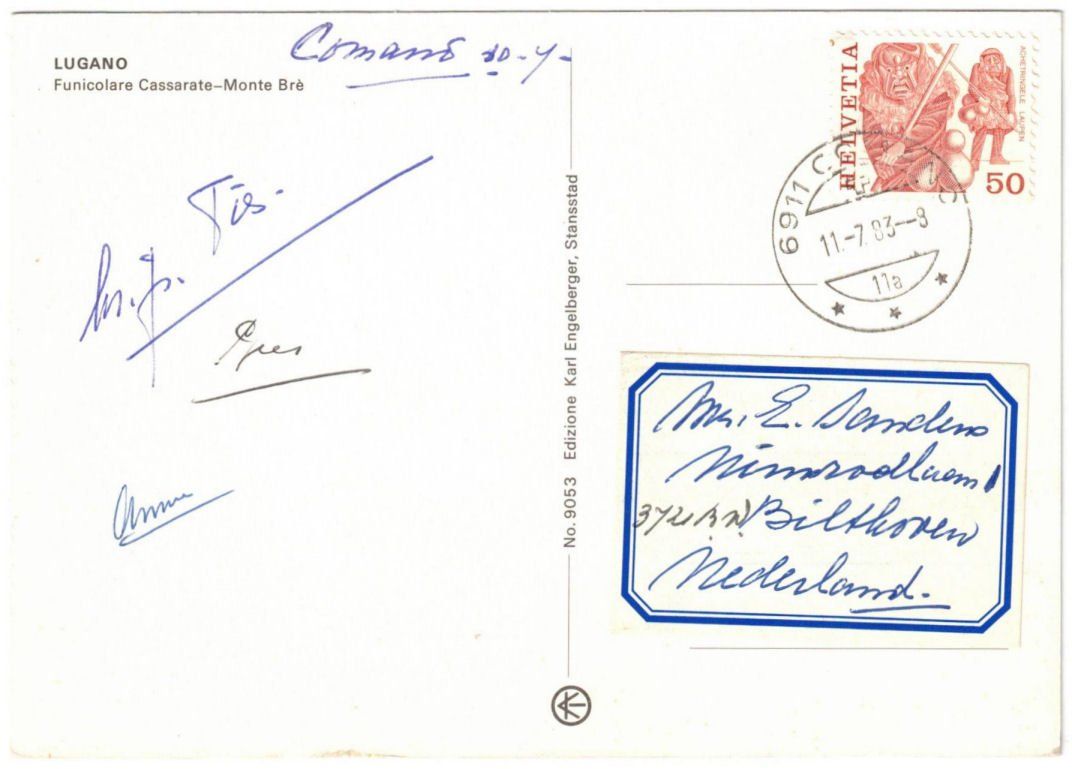 LUGANO
Funicolare Cassarate–Monte Brè
Comano 10-7-
Annie
No. 9053 Edizione Karl Engelberger, Stansstad
HELVETIA
ACHETRINGELE LAUPEN
50
6911 COMANO
11.-7.83--8
11a
E. Sanders
Nimrodlaan 1
Bilthoven
Nederland.